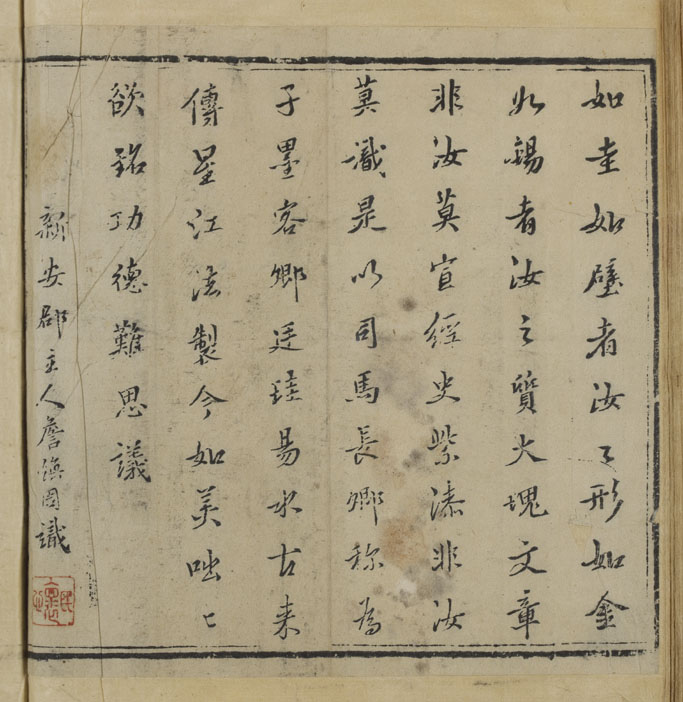 如圭如璧者汝之形如金
如錫者汝之質大塊文章
非汝莫宣經史紫漆非汝
莫識是以司馬長卿称為
子墨客卿廷珪易水古来
傳星江法製今如美咄〻
欲銘功德難思議
新安郡主人詹 圀識